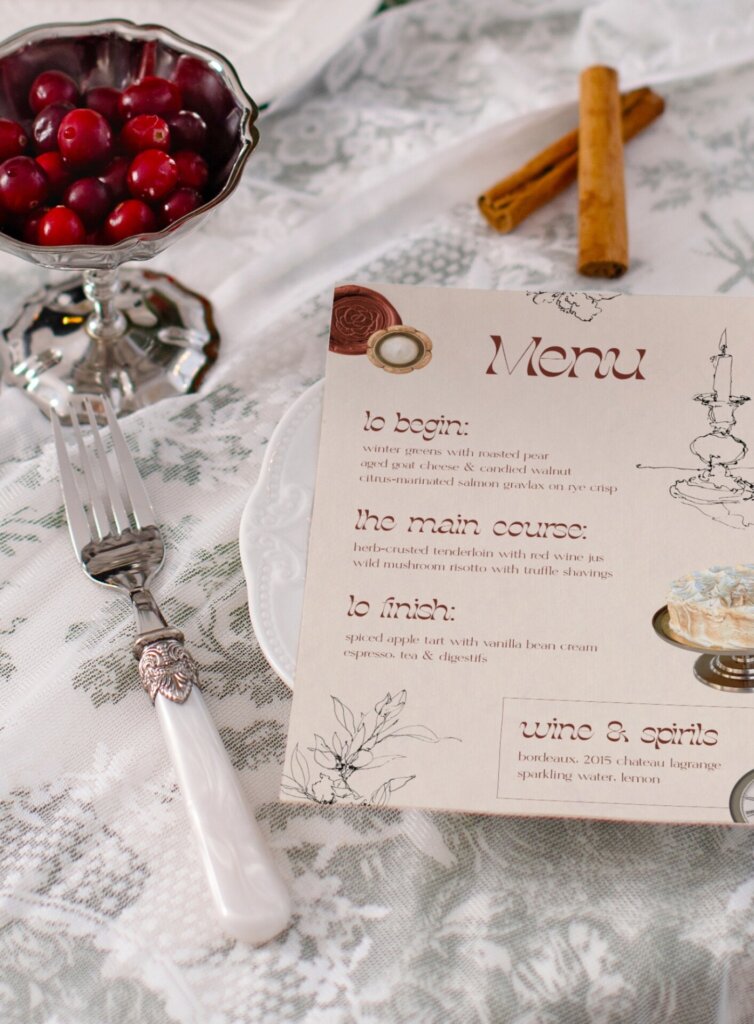 Menu
to begin:
winter greens with roasted pear
aged goat cheese & candied walnut
citrus-marinated salmon gravlax on rye crisp
the main course:
herb-crusted tenderloin with red wine jus
wild mushroom risotto with truffle shavings
to finish:
spiced apple tart with vanilla bean cream
espresso, tea & digestifs
wine & spirits
bordeaux, 2015 chateau lagrange
sparkling water, lemon